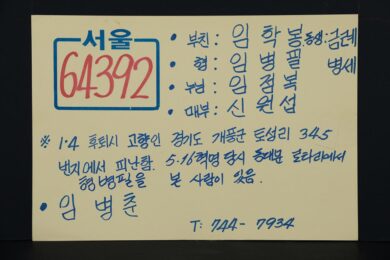 서울
64392
• 부친: 임학봉 동생: 금례
• 형: 임병필 병세
• 누님: 임점복
• 매부: 신원섭
※ 1·4 후퇴시 고향인 경기도 개풍군 토성리 345
번지에서 피난함. 5·16혁명 당시 동대문 로타리에서
형 병필을 본 사람이 있음.
• 임병춘
T: 744-7934